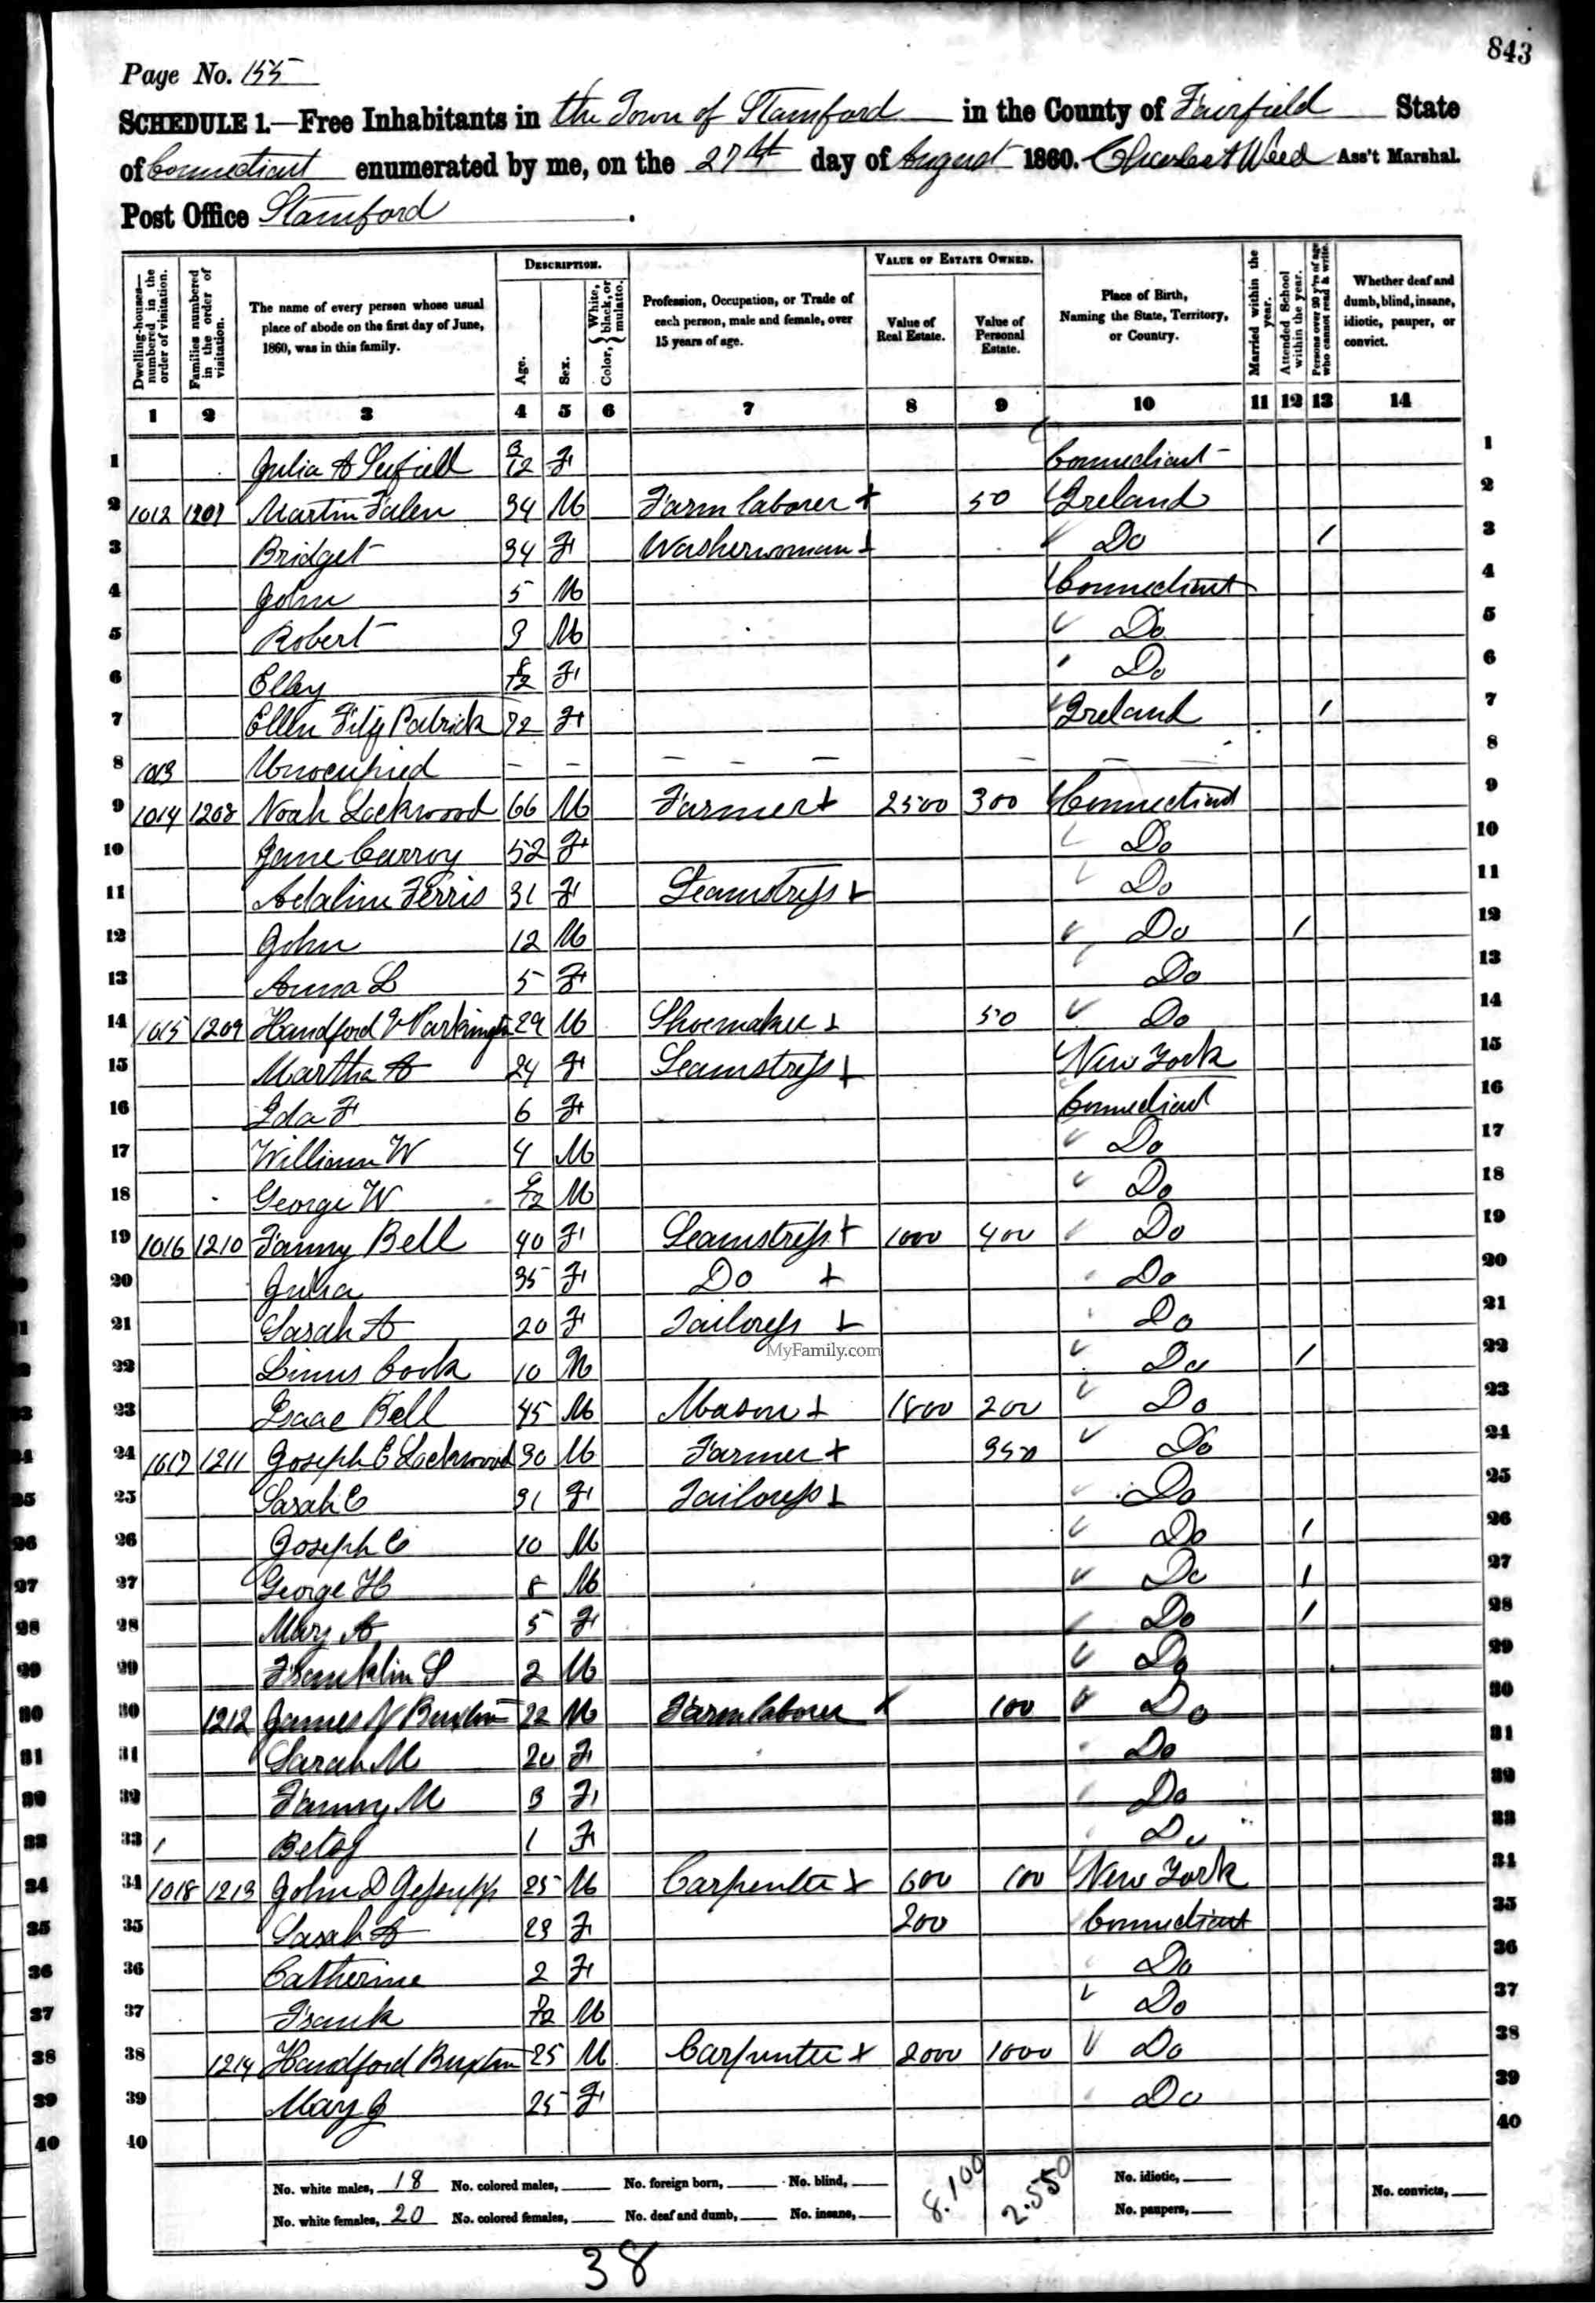 843
Page No. 155
SCHEDULE 1.—Free Inhabitants in the Town of Stamford in the County of Fairfield State
of Connecticut enumerated by me, on the 27th day of August 1860. Charles A Weed Ass't Marshal.
Post Office Stamford .
DESCRIPTION. VALUE OF ESTATE OWNED.
Dwelling-houses—numbered in the order of visitation. Families numbered in the order of visitation. The name of every person whose usual place of abode on the first day of June, 1860, was in this family. Age. Sex. Color, {White, black, or mulatto. Profession, Occupation, or Trade of each person, male and female, over 15 years of age. Value of Real Estate. Value of Personal Estate. Place of Birth, Naming the State, Territory, or Country. Married within the year. Attended School within the year. Persons over 20 y'rs of age who cannot read & write. Whether deaf and dumb, blind, insane, idiotic, pauper, or convict.
1 2 3 4 5 6 7 8 9 10 11 12 13 14
1 Julia A 3/12 F Connecticut 1
2 1012 1207 Martin Falen 34 M Farm laborer 50 Ireland 2
3 Bridget 34 F Washerwoman Do / 3
4 John 5 M Connecticut 4
5 Robert 3 M Do 5
6 Elley 8/12 F Do 6
7 Ellen Fitz Patrick 72 F Ireland / 7
8 1013 Unocupied — — — — — — — 8
9 1014 1208 Noah Lockwood 66 M Farmer 2500 300 Connecticut 9
10 Jane 52 F Do 10
11 Adaline Ferris 31 F Seamstress Do 11
12 John 12 M Do / 12
13 Anna L 5 F Do 13
14 1015 1209 Handford 29 M Shoemaker 50 Do 14
15 Martha A 24 F Seamstress New York 15
16 Ida F 6 F Connecticut 16
17 William W 4 M Do 17
18 George W /12 M Do 18
19 1016 1210 Fanny Bell 40 F Seamstress 1000 400 Do 19
20 Julia 35 F Do Do 20
21 Sarah A 20 F Tailoress Do 21
MyFamily.com
22 Linus Cook 10 M Do / 22
23 Isaac Bell 45 M Mason 1800 200 Do 23
24 1017 1211 Joseph C Lockwood 30 M Farmer 350 Do 24
25 Sarah C 31 F Tailoress Do 25
26 Joseph C 10 M Do / 26
27 George H 8 M Do / 27
28 Mary A 5 F Do / 28
29 Franklin S 2 M Do 29
30 1212 James N Buxton 22 M Farm laborer 100 Do 30
31 Sarah M 20 F Do 31
32 Fanny M 3 F Do 32
33 Betsy 1 F Do 33
34 1018 1213 John D Jessupp 25 M Carpenter 600 100 New York 34
35 Sarah A 23 F 200 Connecticut 35
36 Catherine 2 F Do 36
37 Frank /12 M Do 37
38 1214 Handford Buxton 25 M Carpenter 2000 1000 Do 38
39 Mary J 25 F Do 39
40 40
No. white males, 18 No. colored males, No. foreign born, No. blind, 8.100 2.550 No. idiotic, No. convicts,
No. white females, 20 No. colored females, No. deaf and dumb, No. insane, No. paupers,
38